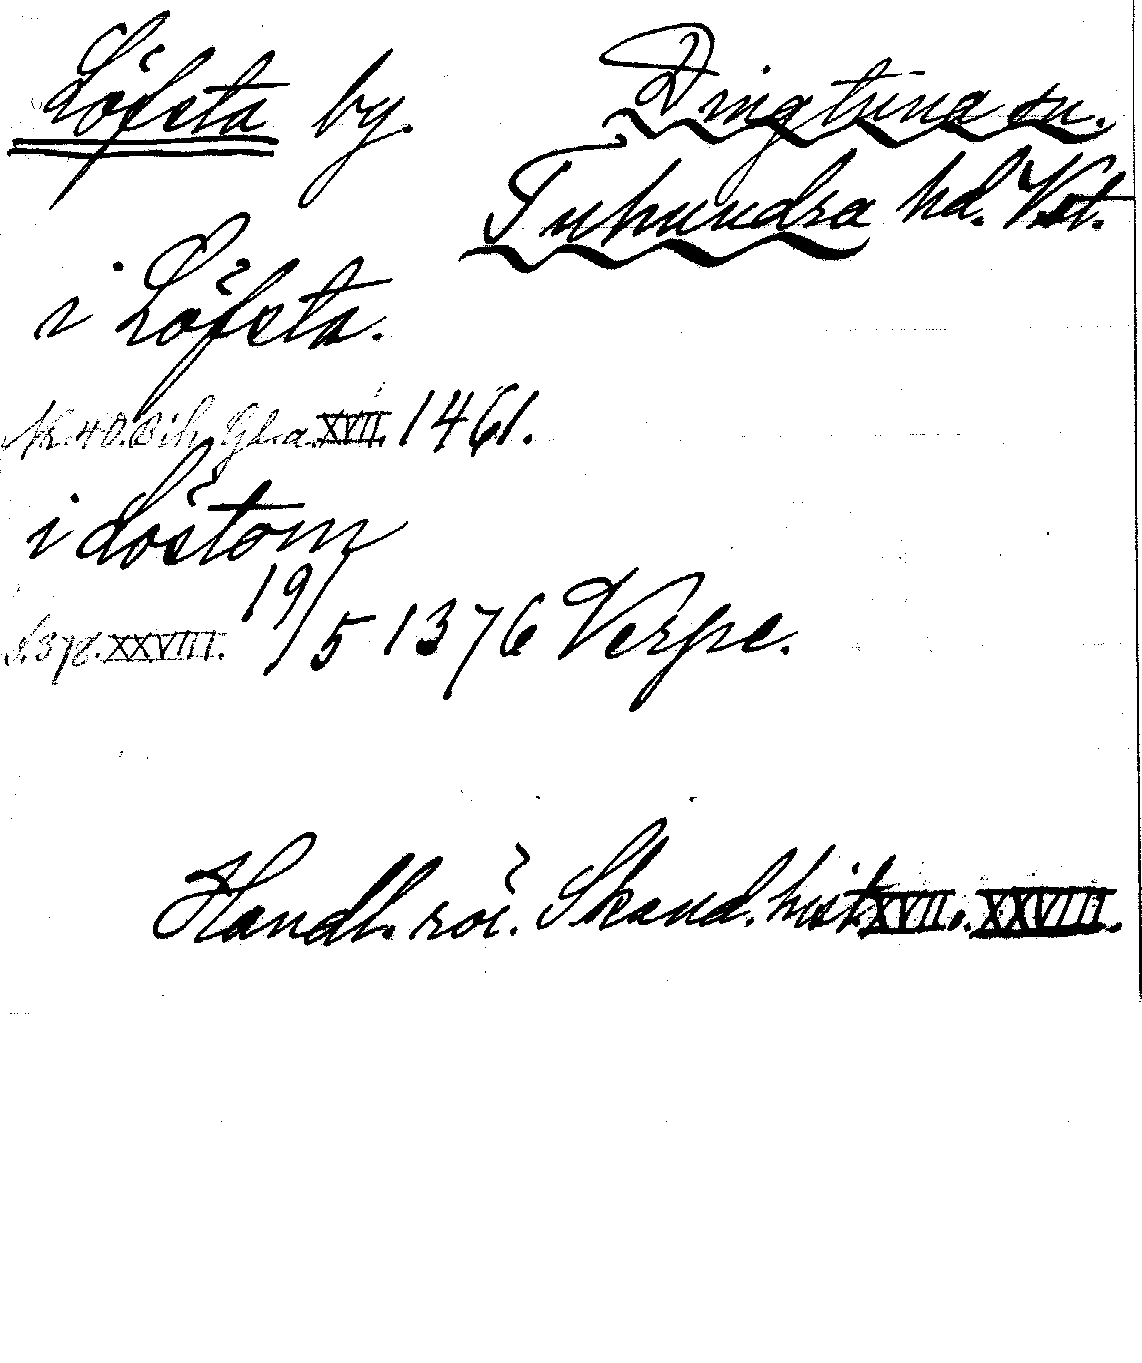 Löfsta by. Dingtuna sn.
Tuhundra hd. Vstl.
i Löfsta.
Nr. 40. Bih. Gl. a. XVII. 1461.
i Löstom
S. 378. XXVIII. 19/5 1376 Verpe.
Handl. rör. Skand. hist. XVII. XXVIII.